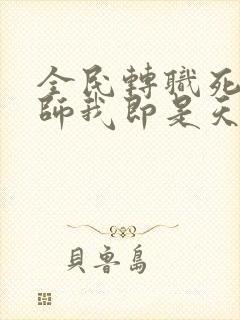 全民轉職死
師我即是天
貝魯島